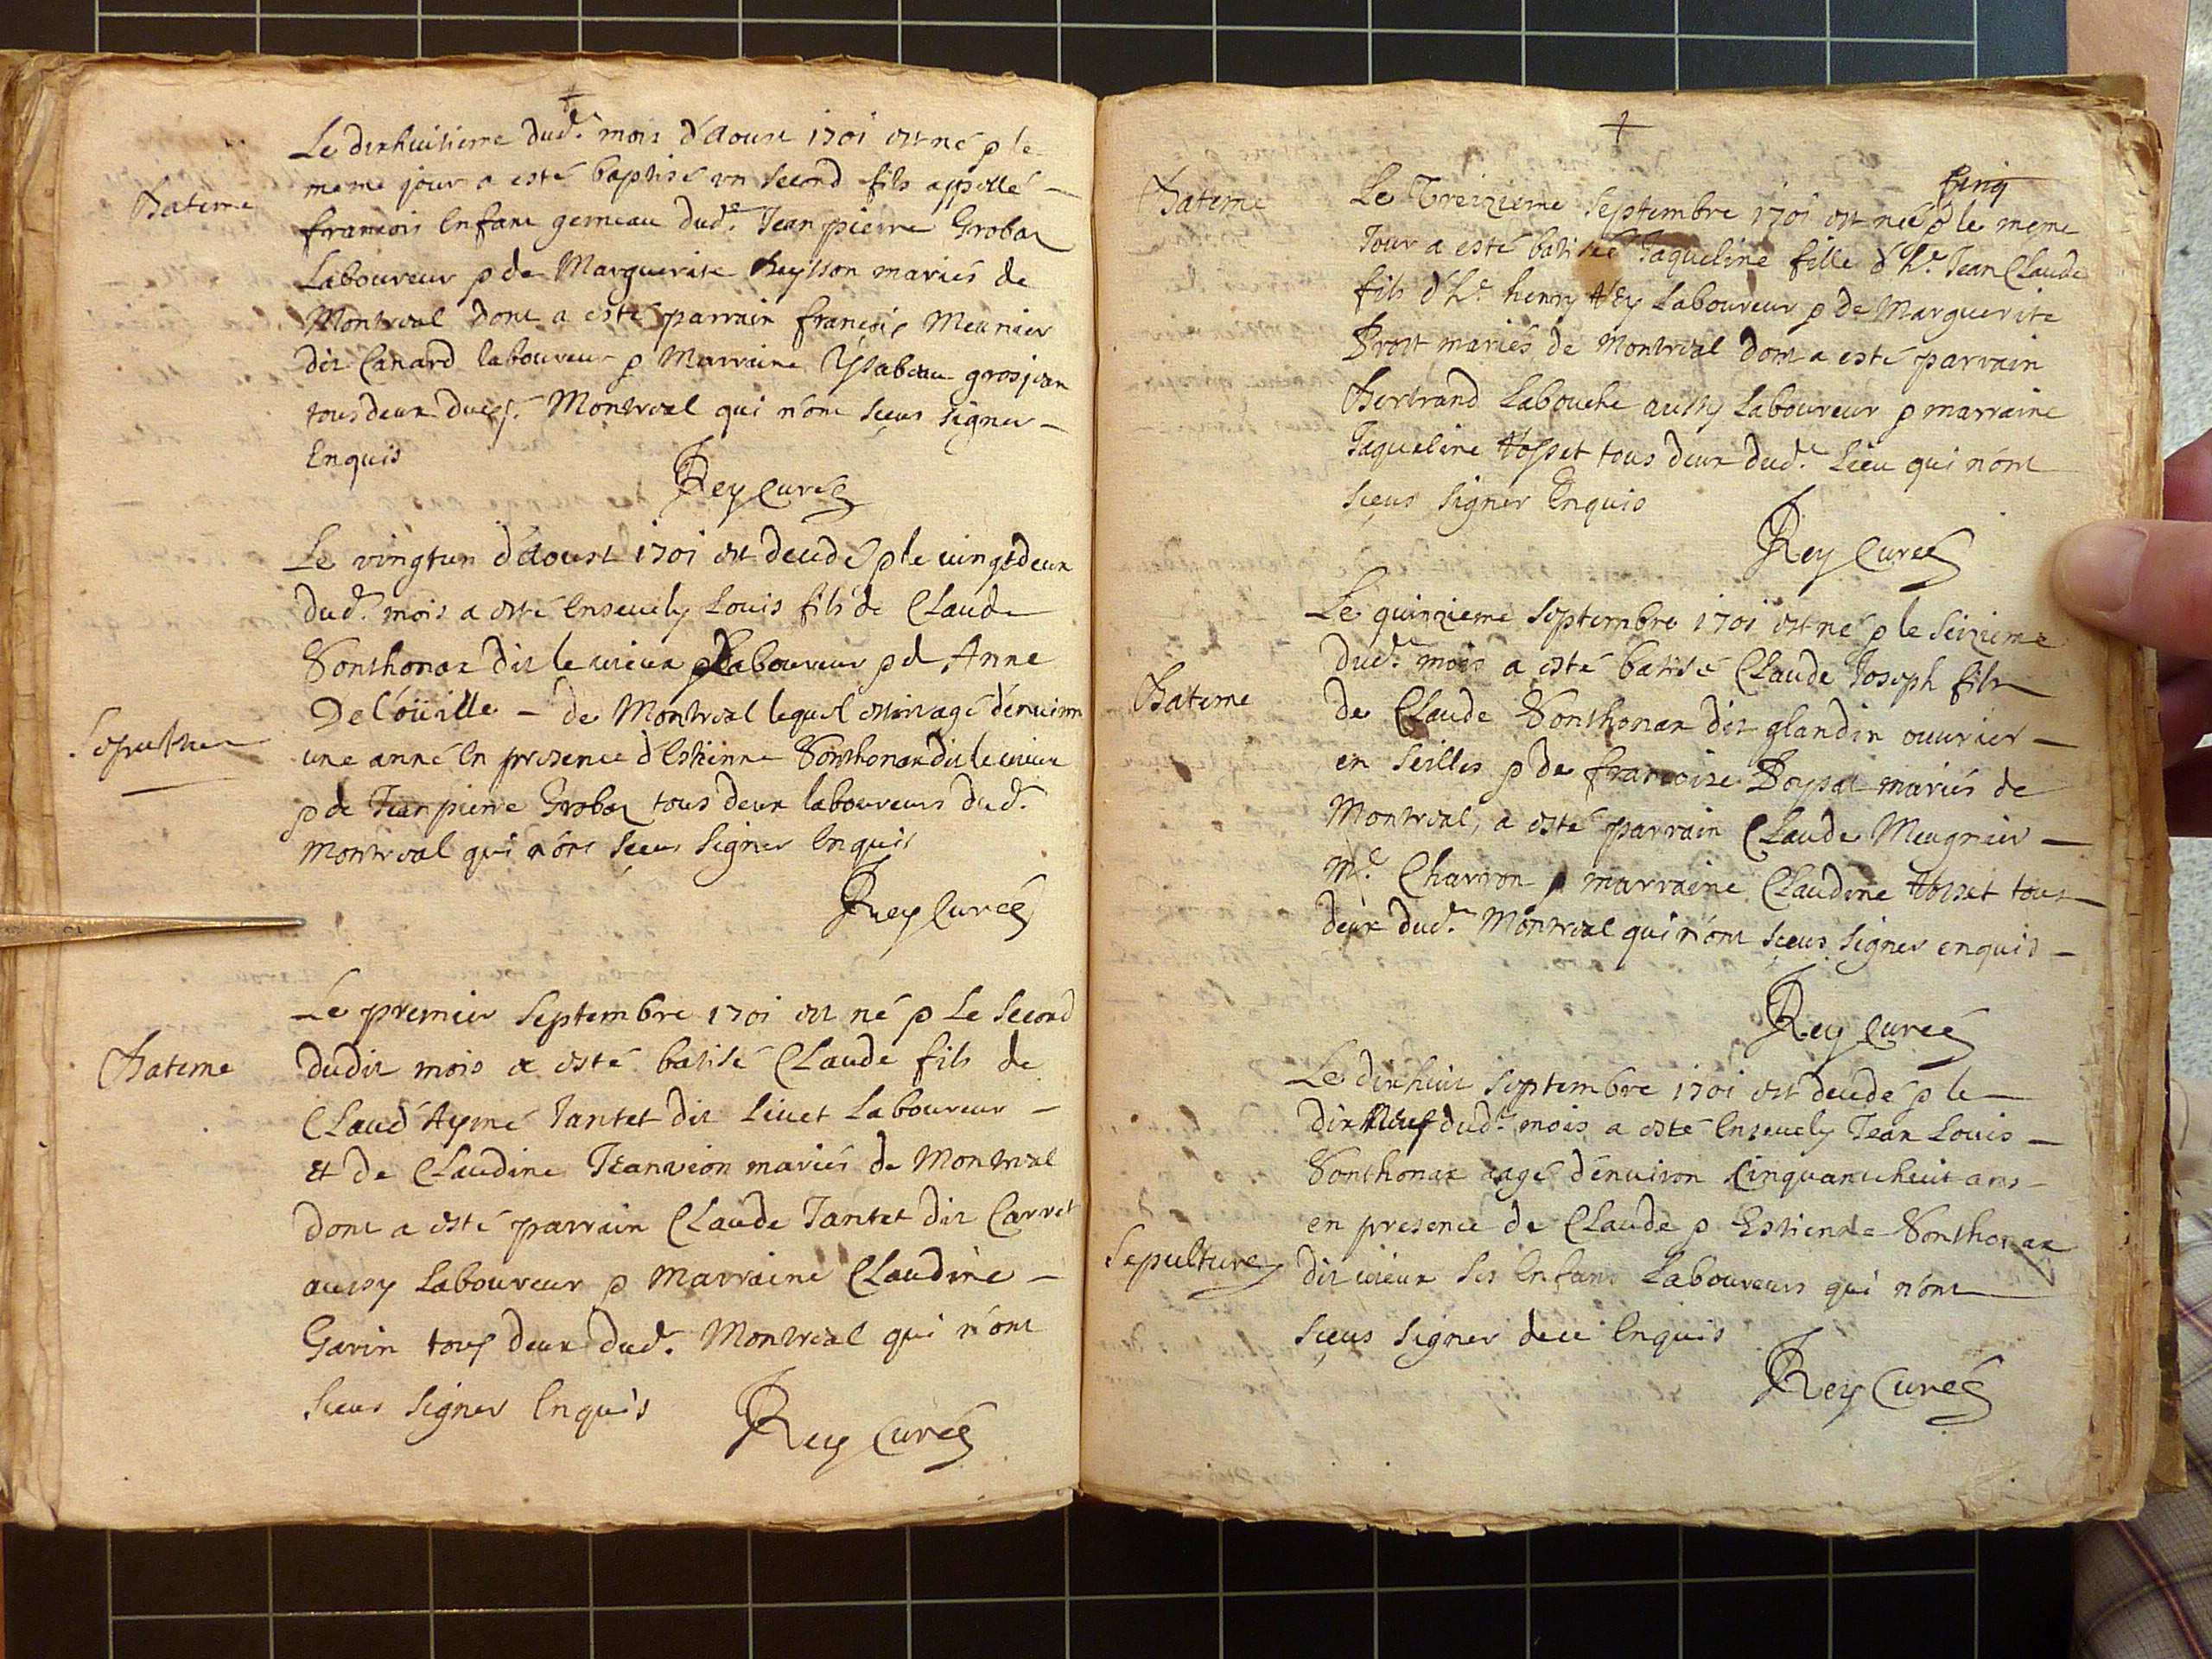 Le dixhuitieme dud. mois d'Aoust 1701 est né & le
meme jour a esté baptisé un second fils appellé
Bateme
francois Enfant gemeau dud. Jean pierre Grobas
Laboureur & de Marguerite Reysson mariés de
Montreal dont a esté parrain francois Meunier
dit Canard laboureur & Marraine Ysabeau grosjean
tous deux dud. Montreal qui n'ont sceus signer
Enquis
Rey Curé
Le vingtun d'Aoust 1701 est decedé & le vingtdeux
dud. mois a esté Ensevely Louis fils de Claude
Sonthonax dit le vieux & Laboureur & d'Anne
De l'oüille - de Montreal lequel estoit agé d'environ
Sepulture
une anné En presence d'Estienne Sonthonax dit le vieux
& de Jean pierre Grobas tous deux laboureurs dud.
Montreal qui n'ont sceus signer Enquis
Rey Curé
Le premier Septembre 1701 est né & Le Second
Bateme
dudit mois a esté batisé Claude fils de
Claud' Aymé Tantet dit Livet Laboureur
Et de Claudine Jeanvion mariés de Montreal
dont a esté parrain Claude Tantet dit Carret
aussy Laboureur & Marraine Claudine
Gavin tous deux dud. Montreal qui n'ont
sceus signer Enquis
Rey Curé
Le Treizieme Septembre 1701 est née & le meme
Bateme
Jour a esté batisée Jaqueline fille d'h.e Jean Claude
fils d'h.e henry Rey Laboureur & de Marguerite
Prost mariés de Montreal dont a esté parrain
Bertrand Labouche aussy Laboureur & marraine
Jaqueline Vosset tous deux dud. Lieu qui n'ont
sceus signer Enquis
Rey Curé
Le quinzieme Septembre 1701 est né & le seizieme
dud. mois a esté batisé Claude Joseph fils
Bateme
de Claude Sonthonax dit glandin ouvrier
en seilles & de francoise Boysat mariés de
Montreal, a esté parrain Claude Meugnier
M.e Charron & marraine Claudine Vosset tous
deux dud. Montreal qui n'ont sceus signer enquis
Rey Curé
Le dixhuit Septembre 1701 est decedé & le
dixneuf dud. mois a esté Ensevely Jean Louis
Sonthonax aagé d'environ Cinquantehuit ans
en presence de Claude & Estienne Sonthonax
Sepulture
dit vieux ses Enfans Laboureurs qui n'ont
sceus signer de ce Enquis
Rey Curé